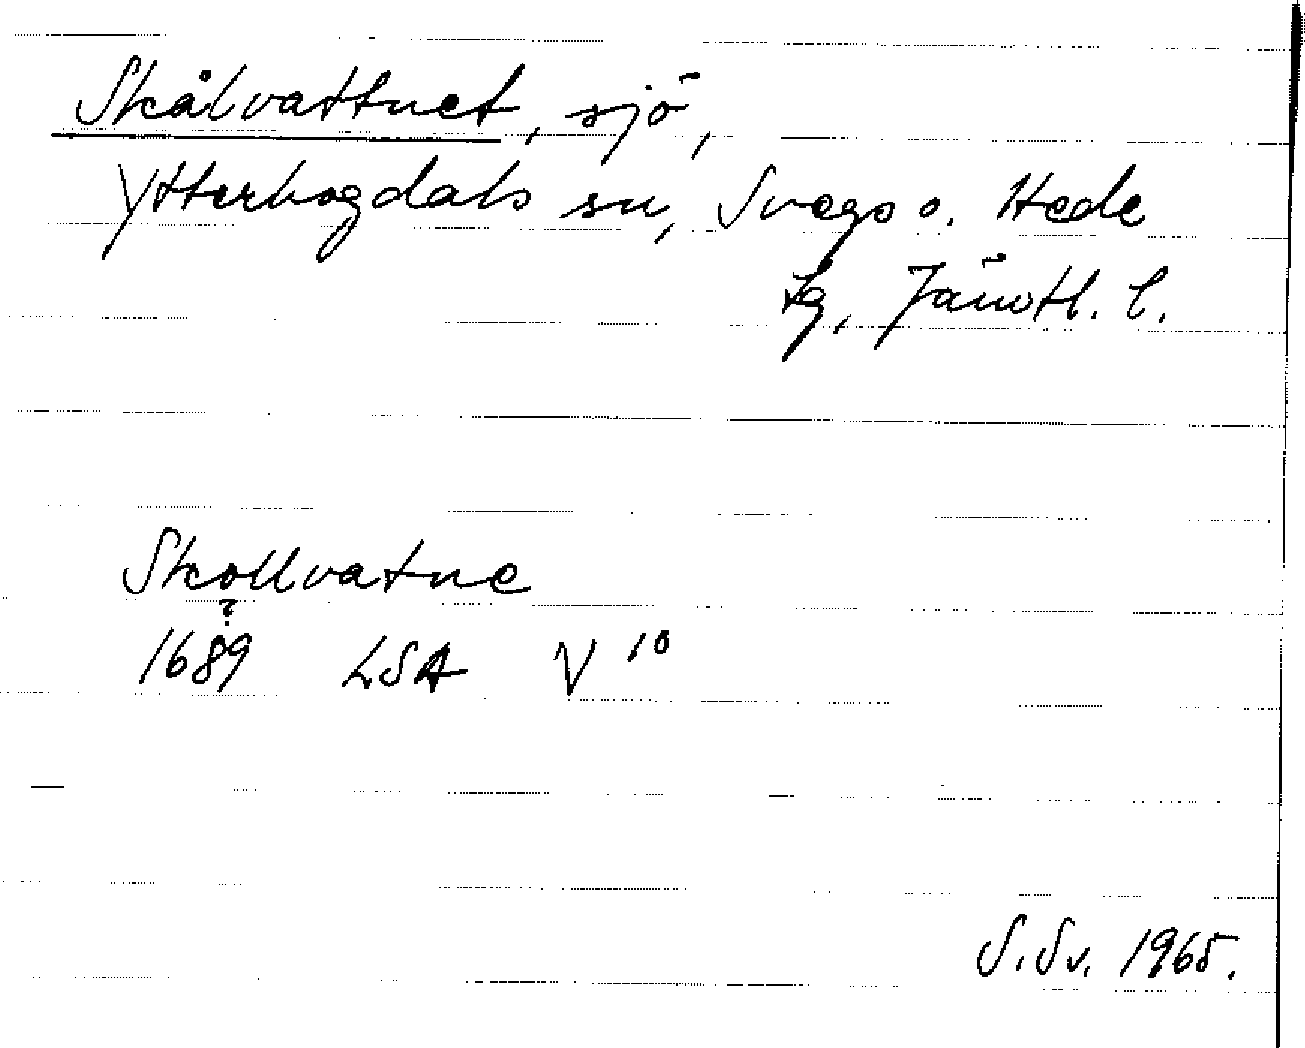 Skålvattnet, sjö,
Ytterhogdals sn, Svegs o. Hede
tg, Jämtl. l.
Skollvatne
?
1689 LSA V 10
S. Sv. 1965.